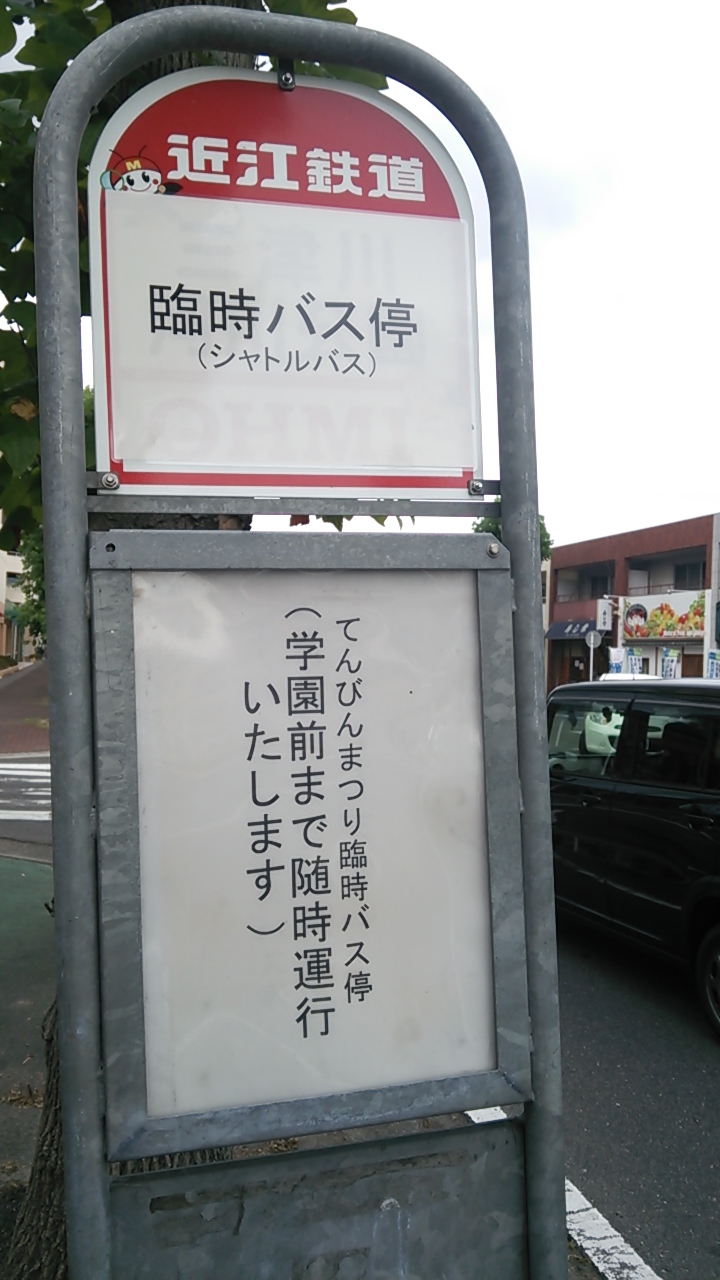 近江鉄道
臨時バス停
（シャトルバス）
てんびんまつり臨時バス停
（学園前まで随時運行
いたします）